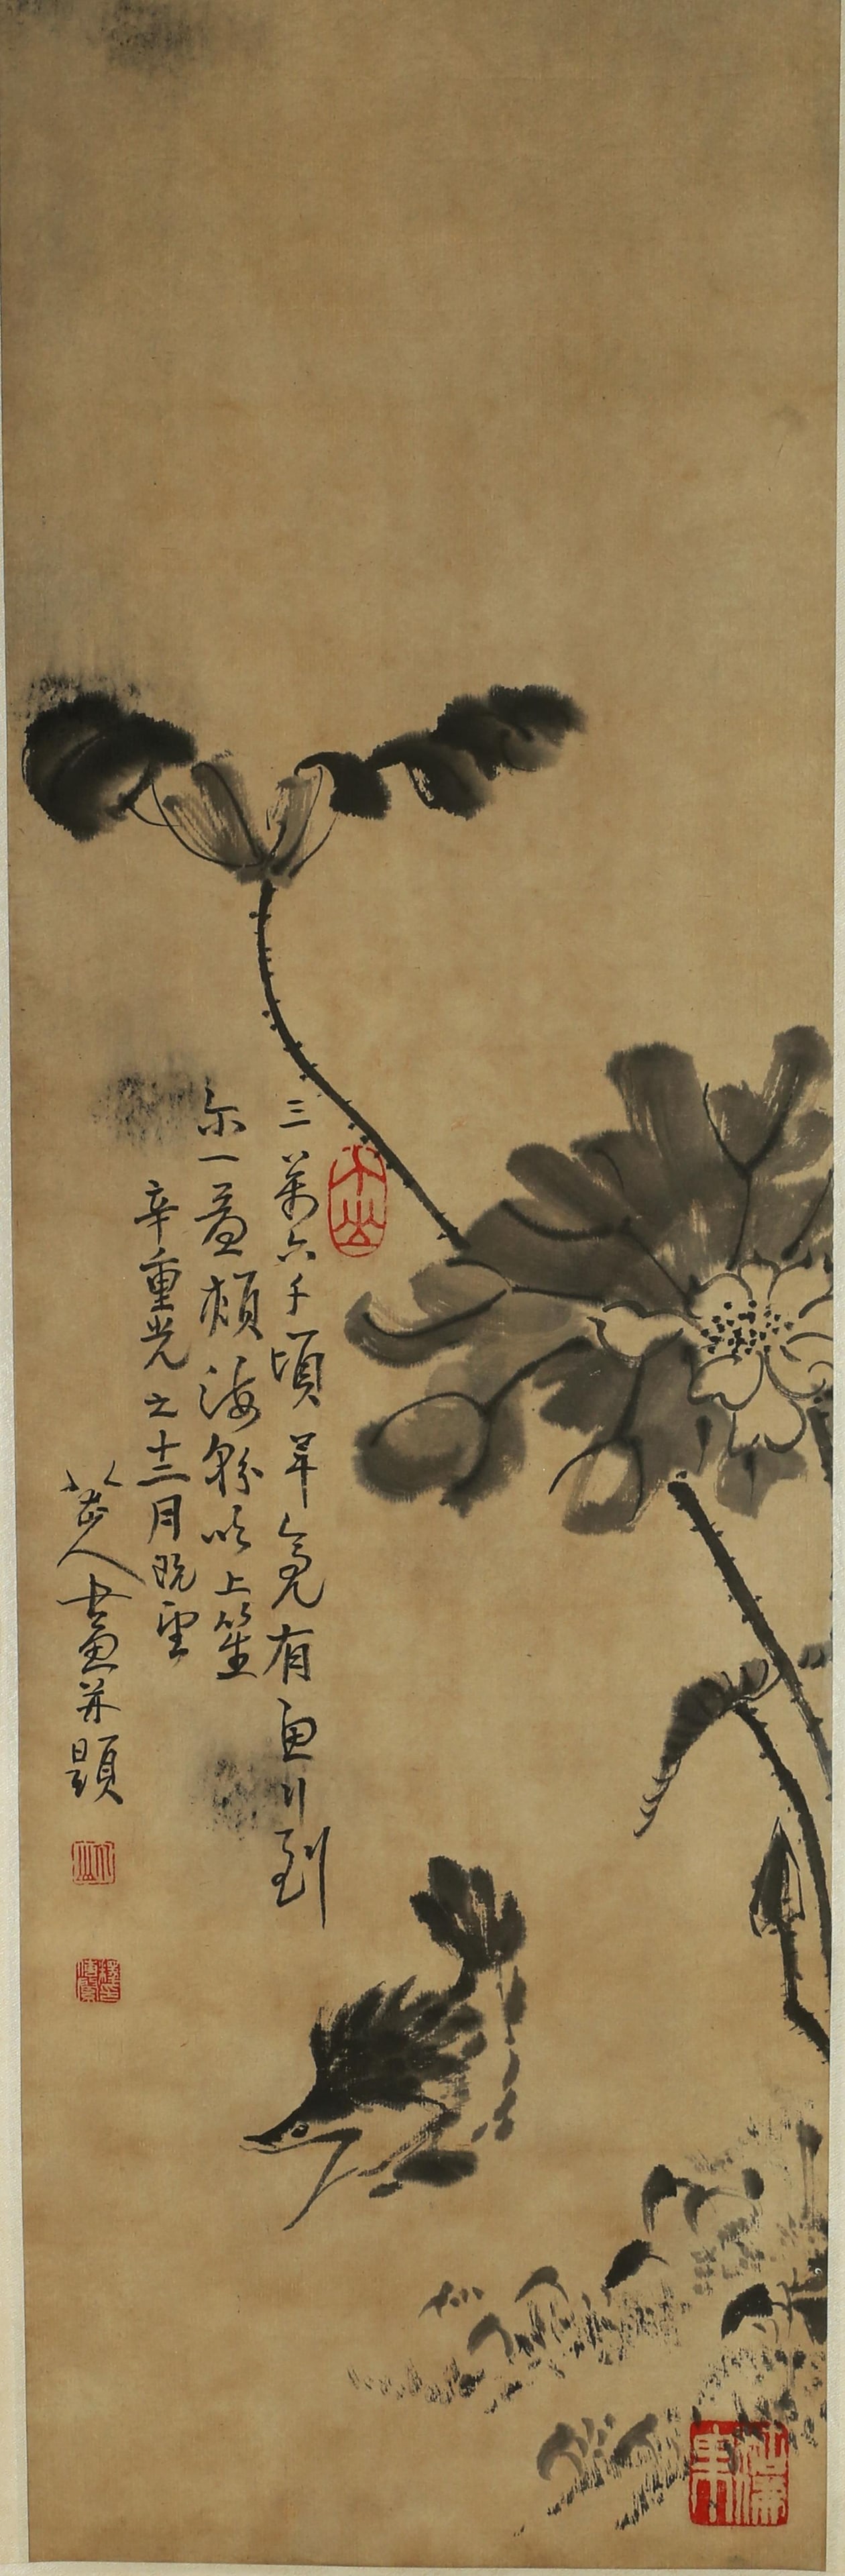 三萬六千頃畢竟有魚行到
尔一黃頰海綿以上笙
辛重光之十三月既望
八大山人畫并題